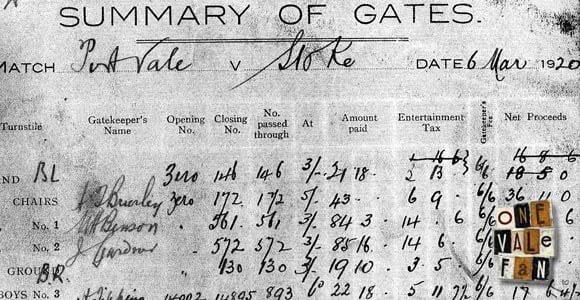 SUMMARY OF GATES.
MATCH Port Vale v Stoke DATE 6 Mar 1920
Turnstile Gatekeeper's Name Opening No. Closing No. No. passed through At Amount paid Entertainment Tax Gatekeeper's Fee Net Proceeds
ND BL Zero 146 146 3/- 21 18 2 13 6/6 18 5 0
CHAIRS Brierley Zero 172 172 5/- 43 6 9 6/6 36 11 0
No. 1 Benson 561 561 3/- 84 3 14 6 6/6
No. 2 J Gardner 572 572 3/- 85 16 14 6 6/6
GROUND BR 130 130 3/- 19 10 3 5 6/6
BOYS No. 3 14002 14895 893 22 18 5 11 6/6 17
ONE
VALE
FAN